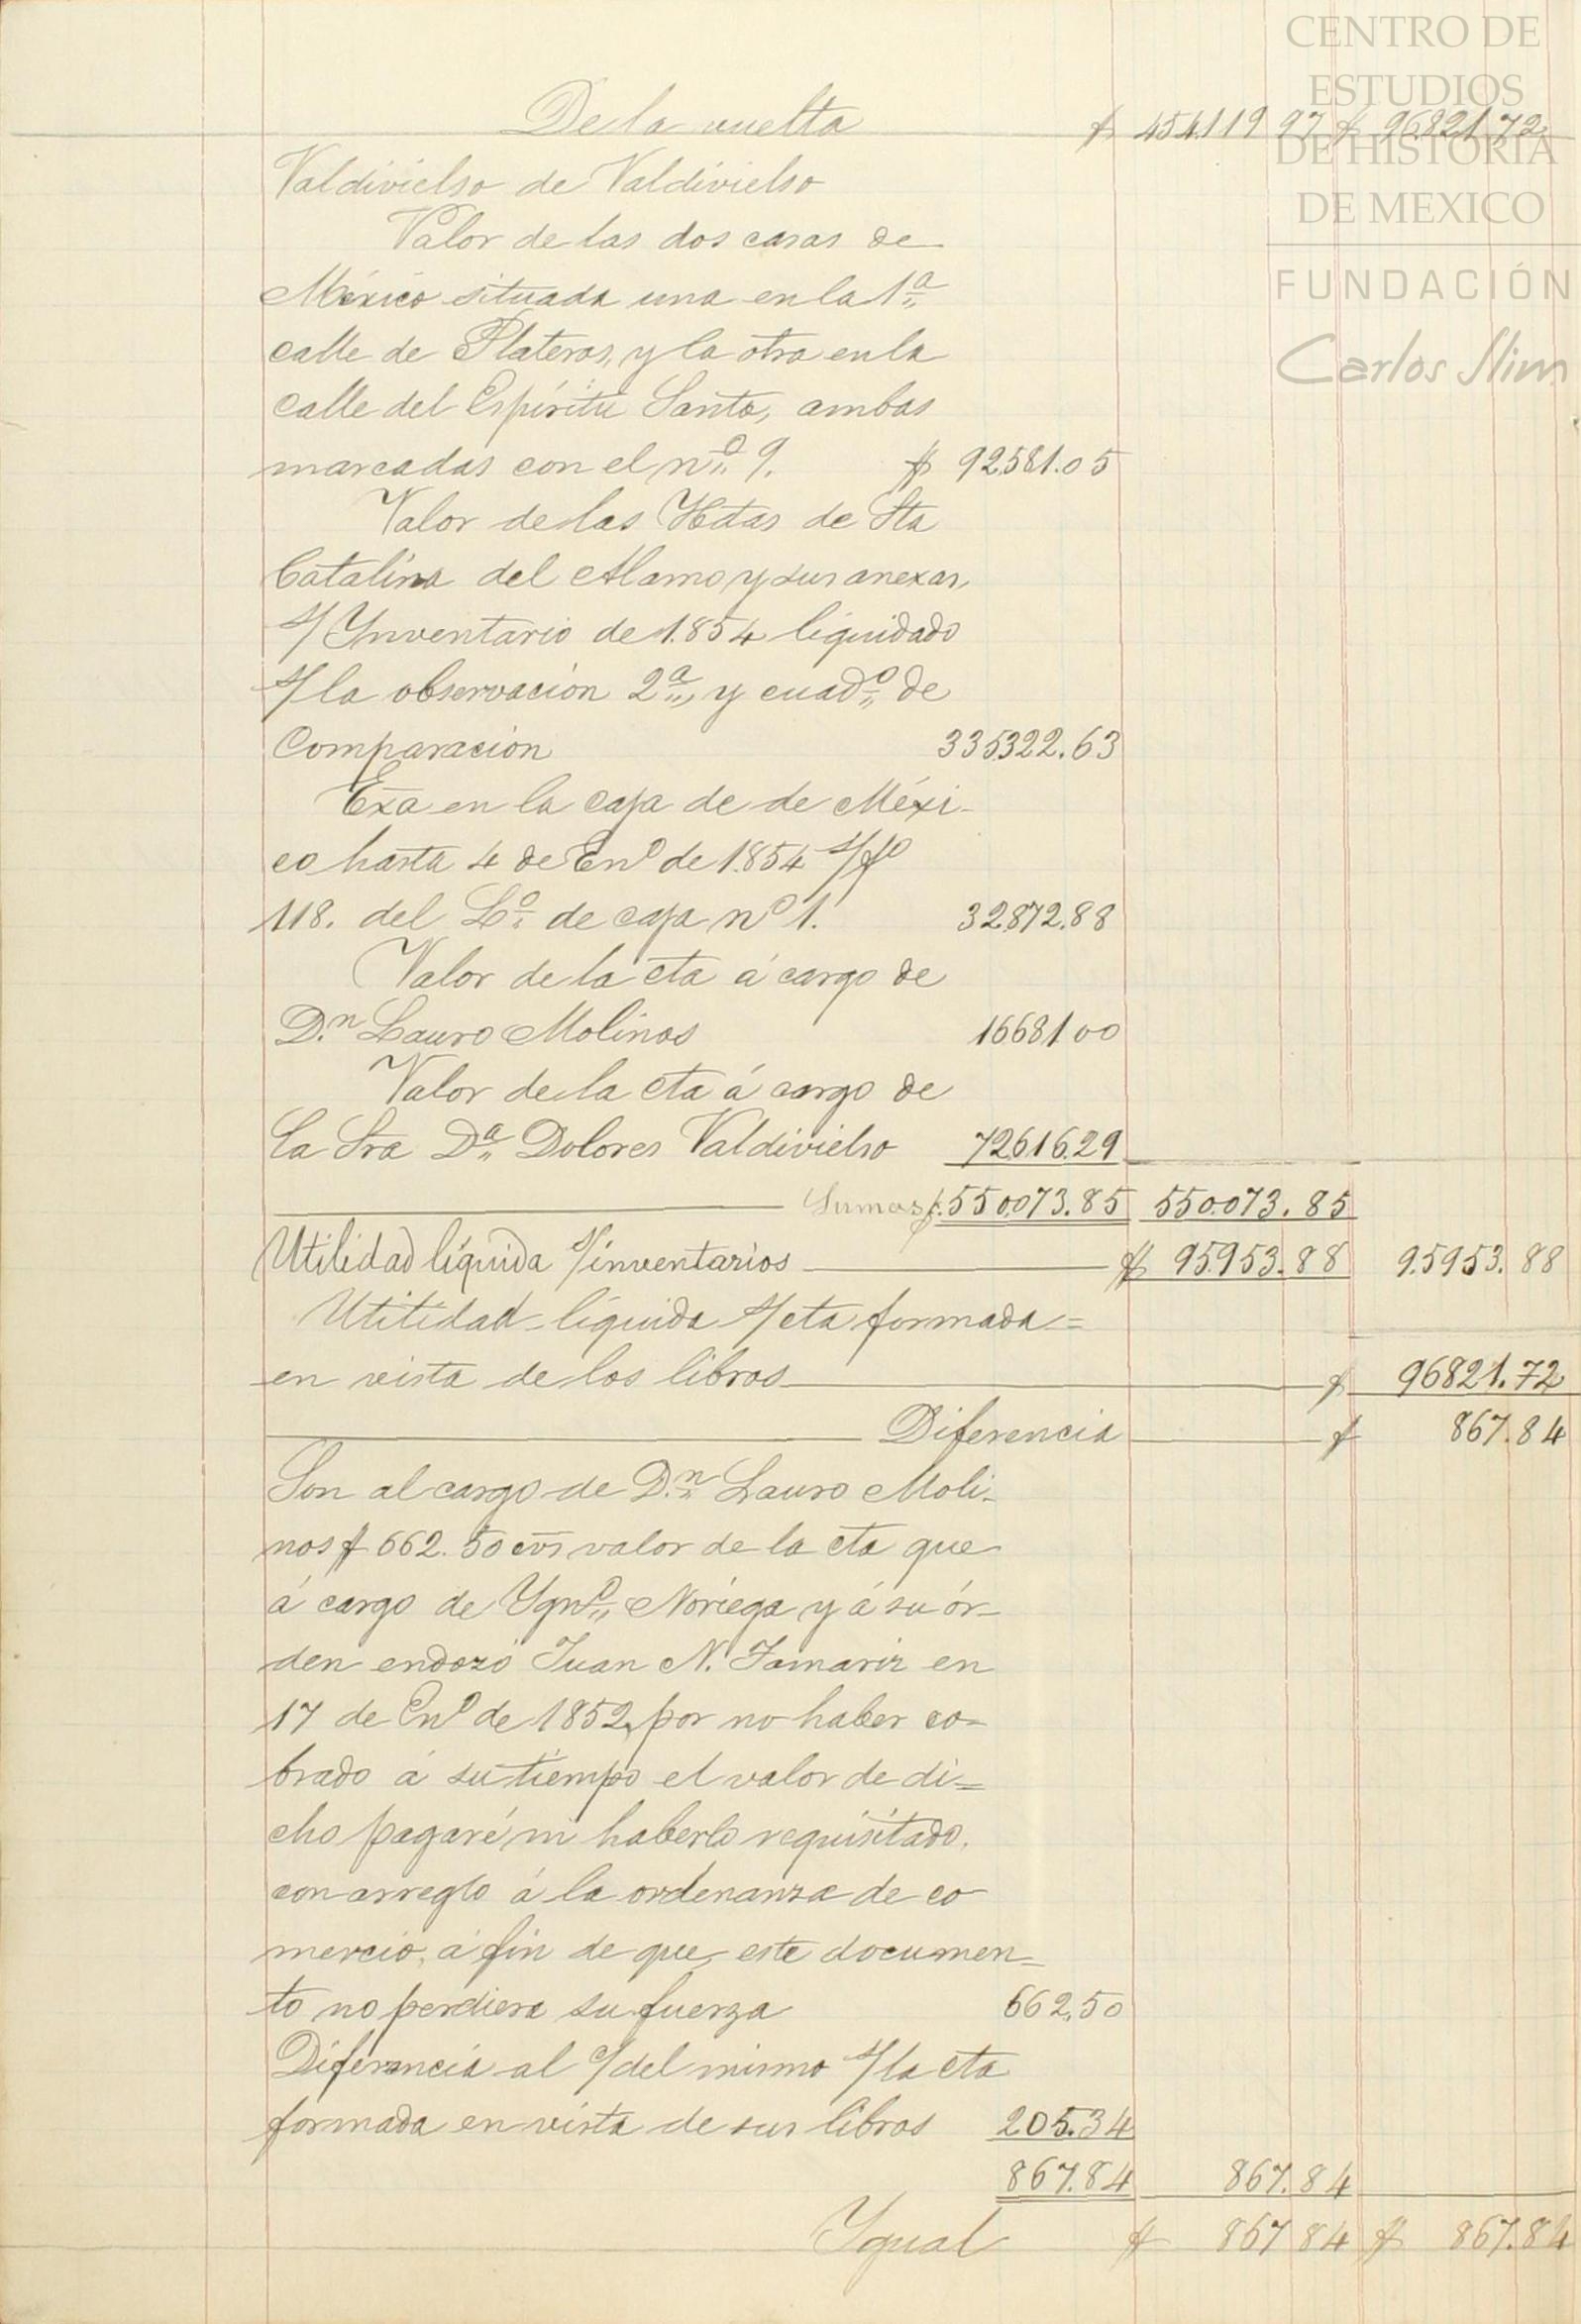 CENTRO DE
ESTUDIOS
DE HISTORIA
DE MEXICO
FUNDACIÓN
Carlos Slim
De la vuelta $ 454119 97 $ 96821.72
Valdivielso de Valdivielso
Valor de las dos casas de
México situada una en la 1ª
calle de Plateros, y la otra en la
calle del Espíritu Santo, ambas
marcadas con el nº 9. $ 92581.05
Valor de las Hdas de Sta
Catalina del Alamo y sus anexas,
s/ Ynventario de 1.854 liquidado
s/ la observación 2ª, y cuadº de
Comparación 335322.63
Exa en la caja de de Méxi-
co hasta 4 de Enº de 1854 s/ fº
118. del Lº de caja nº 1. 32872.88
Valor de la cta á cargo de
D.n Lauro Molinos 16681 00
Valor de la cta á cargo de
la Sra Dª Dolores Valdivielso 72616.29
Sumas $ 550073.85 550.073.85
Utilidad líquida s/ inventarios $ 95953.88 95953.88
Utilidad líquida s/ cta formada=
en vista de los libros $ 96821.72
Diferencia $ 867.84
Son al cargo de D.n Lauro Moli-
nos $ 662.50 cvs valor de la cta que
á cargo de Ygnº Noriega y á su ór-
den endozó Juan N. Tamariz en
17 de Enº de 1852, por no haber co-
brado á su tiempo el valor de di=
cho pagaré ni haberlo requisitado,
con arreglo á la ordenanza de co
mercio, á fin de que este documen-
to no perdiera su fuerza 662,50
Diferencia al c/ del mismo s/ la cta
formada en vista de sus libros 205.34
867.84 867.84
Ygual $ 867 84 $ 867.84